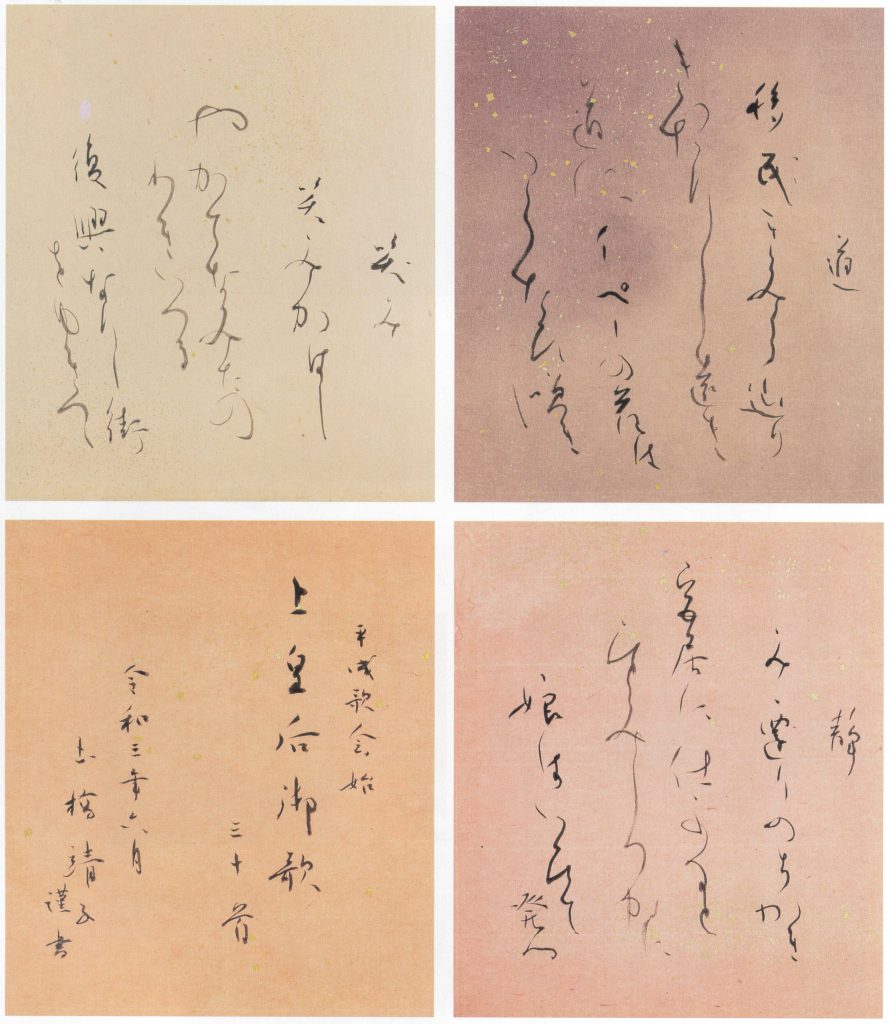 道
移民きみら辿り
きたりし遠き
道にイペーの花は
いくたひ咲き
し
笑み
笑みかはし
やかてなみたの
わきいつる
復興なりし街
をゆきつつ
静
み遷りのちかき
宮居に仕ふると
ひとみしつかに
娘はいひて
発つ
平成歌会始
上皇后御歌
三十首
令和三年六月
土橋靖子
謹書